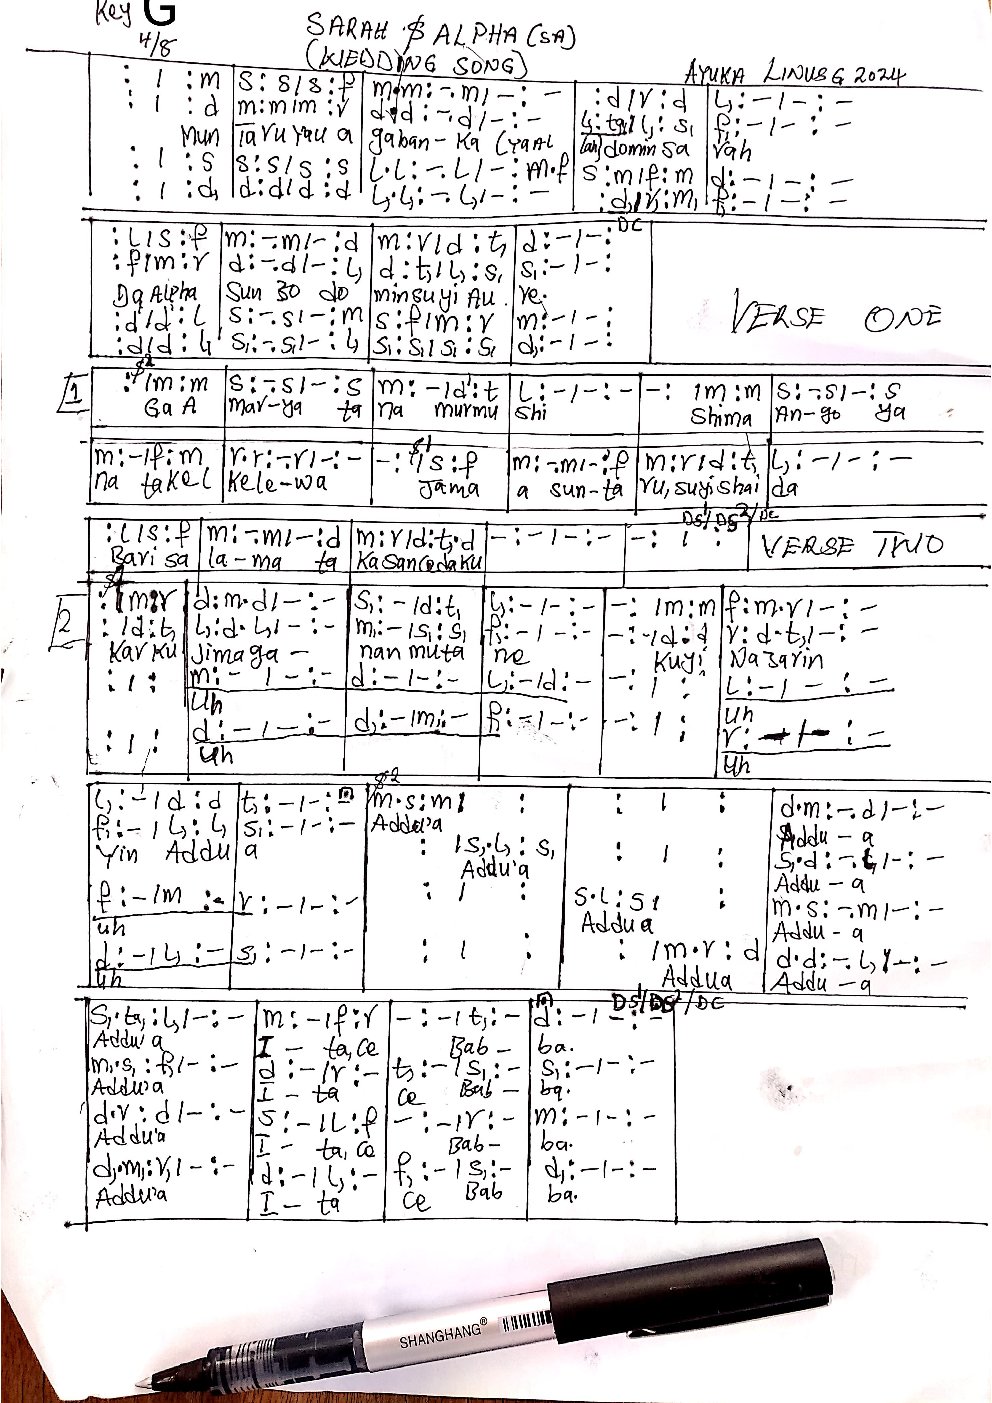 Key G
4/8
SARAH $ ALPHA (SA)
(WEDDING SONG)
AYUKA LINUS G 2024
: | :m | s: s/s :f | m·m: -·m/ -: - | :d/r :d | l,: - / - : -
: | :d | m:m/m :r | d·d: -·d/ -: - | l,:ta,/l,: s, | f,: - / - : -
Mun Taru Yau a gaban-Ka (Yaal domin Sa rah
: | :s | s:s/s :s | l·l: -·l/ -: m·f | s:m/f:m | d: - / - : -
: | :d, | d:d/d :d | l,·l,: -·l,/ -: - | :d,/r,:m, | f,: - / - : -
DC
:l/s:f | m:-·m/-:d | m:r/d:t, | d:-/-:
:f/m:r | d:-·d/-:l, | d:t,/l,:s, | s,:-/-:
Da Alpha Sun zo do minsuyi Au re.
:d/d:l | s:-·s/-:m | s:f/m:r | m:-/-:
:d/d:l, | s,:-·s,/-:l, | s,:s,/s,:s, | d,:-/-:
VERSE ONE
1
$2
: /m:m | s:-·s/-:s | m:-/d:t | l:-/-:- | -: /m:m | s:-·s/-:s
Ga A mar-ya ta na murmu shi Shima An-go ya
$1
m:-/f:m | r·r:-·r/-:- | -: /s:f | m:-·m/-:f | m:r/d:t, | l,:-/-:-
na takel Kele-wa Jama a sun-ta ru, suyi shai da
DS1/DS2/DC
:l/s:f | m:-·m/-:d | m:r/d:t,·d | -:-/-:- | -: / :
Bari sa la-ma ta Kasancedaku
VERSE TWO
2
: /m:r | d:m·d/-:- | s,:-/d:t, | l,:-/-:- | -: /m:m | f:m·r/-:-
: /d:t, | l,:d·l,/-:- | m,:-/s,:s, | f,:-/-:- | -:-/d:d | r:d·t,/-:-
Kar Ku Jimaga - nan muta ne Kuyi Nazarin
: / : | m:-/-:- | d:-/-:- | l,:-/d:- | -: / : | l:-/-:-
Uh Uh
: / : | d:-/-:- | d,:-/m,:- | f,:-/-:- | -: / : | r:-/-:-
Uh Uh
$2
l,:-/d:d | t,:-/-:- | m·s:m/ : | : / : | d·m:-·d/-:-
Addu'a Addu-a
f,:-/l,:l, | s,:-/-:- | : /s,·l,:s, | : / : | s,·d:-·l,/-:-
Yin Addu a Addu'a Addu-a
f:-/m:- | r:-/-:- | : / : | s·l:s/ : | m·s:-·m/-:-
uh Addu a Addu-a
d:-/l,:- | s,:-/-:- | : / : | : /m·r:d | d·d:-·l,/-:-
Uh Addua Addu-a
DS1/DS2/DC
s,·ta,:l,/-:- | m:-/f:r | -:-/t,:- | d:-/-:-
Addu'a I - ta, ce Bab- ba.
m,·s,:f,/-:- | d:-/r:- | t,:-/s,:- | s,:-/-:-
Addu'a I - ta ce Bab- ba.
d·r:d/-:- | s:-/l:f | -:-/r:- | m:-/-:-
Addu'a I - ta, ce Bab- ba.
d,·m,:r,/-:- | d:-/l,:- | f,:-/s,:- | d,:-/-:-
Addu'a I - ta ce Bab ba.
SHANGHANG®